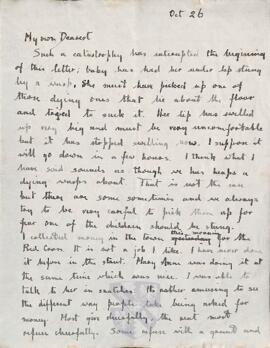 Oct 26
My own Dearest
Such a catastrophy has interrupted the beginning
of this letter; baby has had her under lip stung
by a wasp. She must have picked up one of
those dying ones that lie about the floor
and tried to suck it. Her lip has swelled
up very big and must be very uncomfortable
but it has stopped swelling now. I suppose it
will go down in a few hours. I think what I
have said sounds as though we has heaps a
dying wasps about. That is not the case
but there are some sometimes and we always
try to be very careful to pick them up for
fear one of the children should be stung.
this morning
I collected money in the town yesterday for the
Red Cross. It is not a job I like. I have never done
it before in the street. Mary Anne was doing it at
the same time which was nice. I was able to
talk to her in snatches. It's rather amusing to see
the different way people take being asked for
money. Most give cheerfully the next most
refuse cheerfully. Some refuse with a grunt and